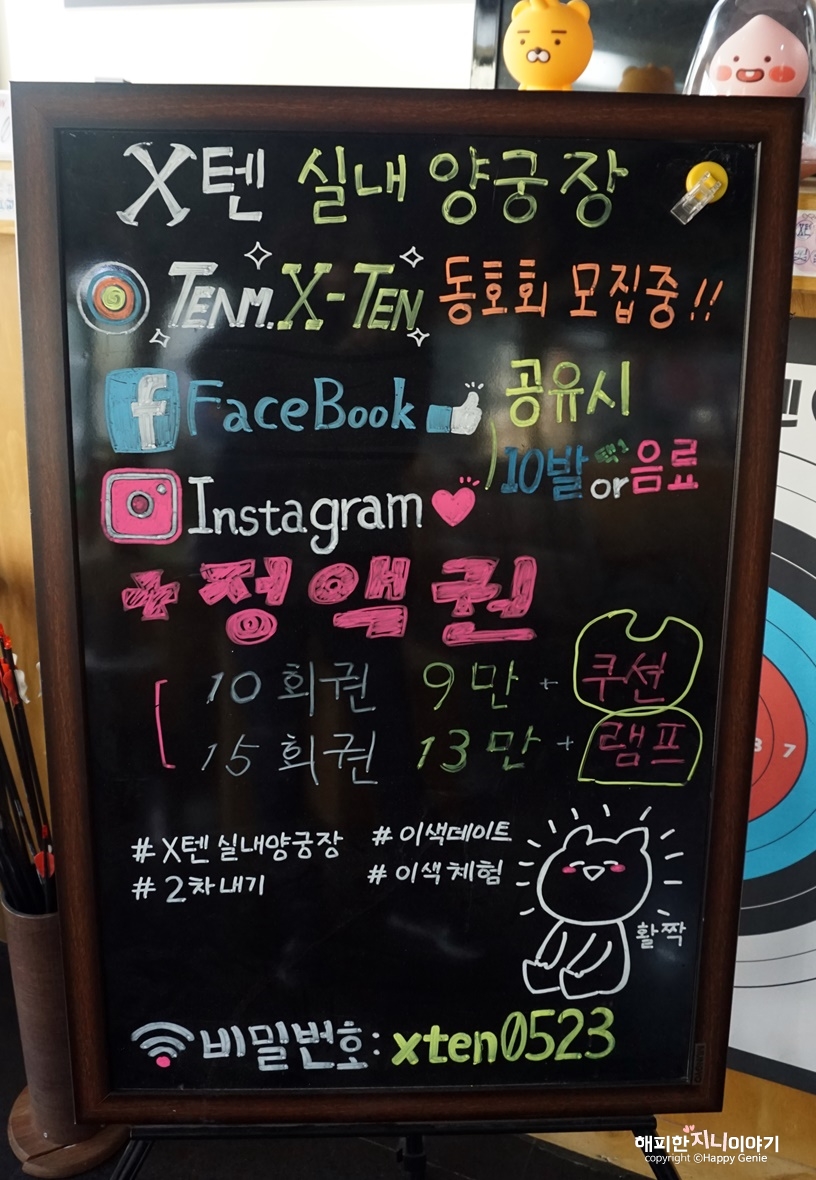 X텐 실내 양궁장
TENM. X-TEN 동호회 모집중!!
f FaceBook 공유시
10발 택1 or 음료
Instagram
+정액권
10회권 9만 + 쿠션
15회권 13만 + 램프
#X텐 실내양궁장 #이색데이트
#2차내기 #이색체험
활짝
비밀번호: xten0523
7
해피한지니이야기
copyright ©Happy Genie